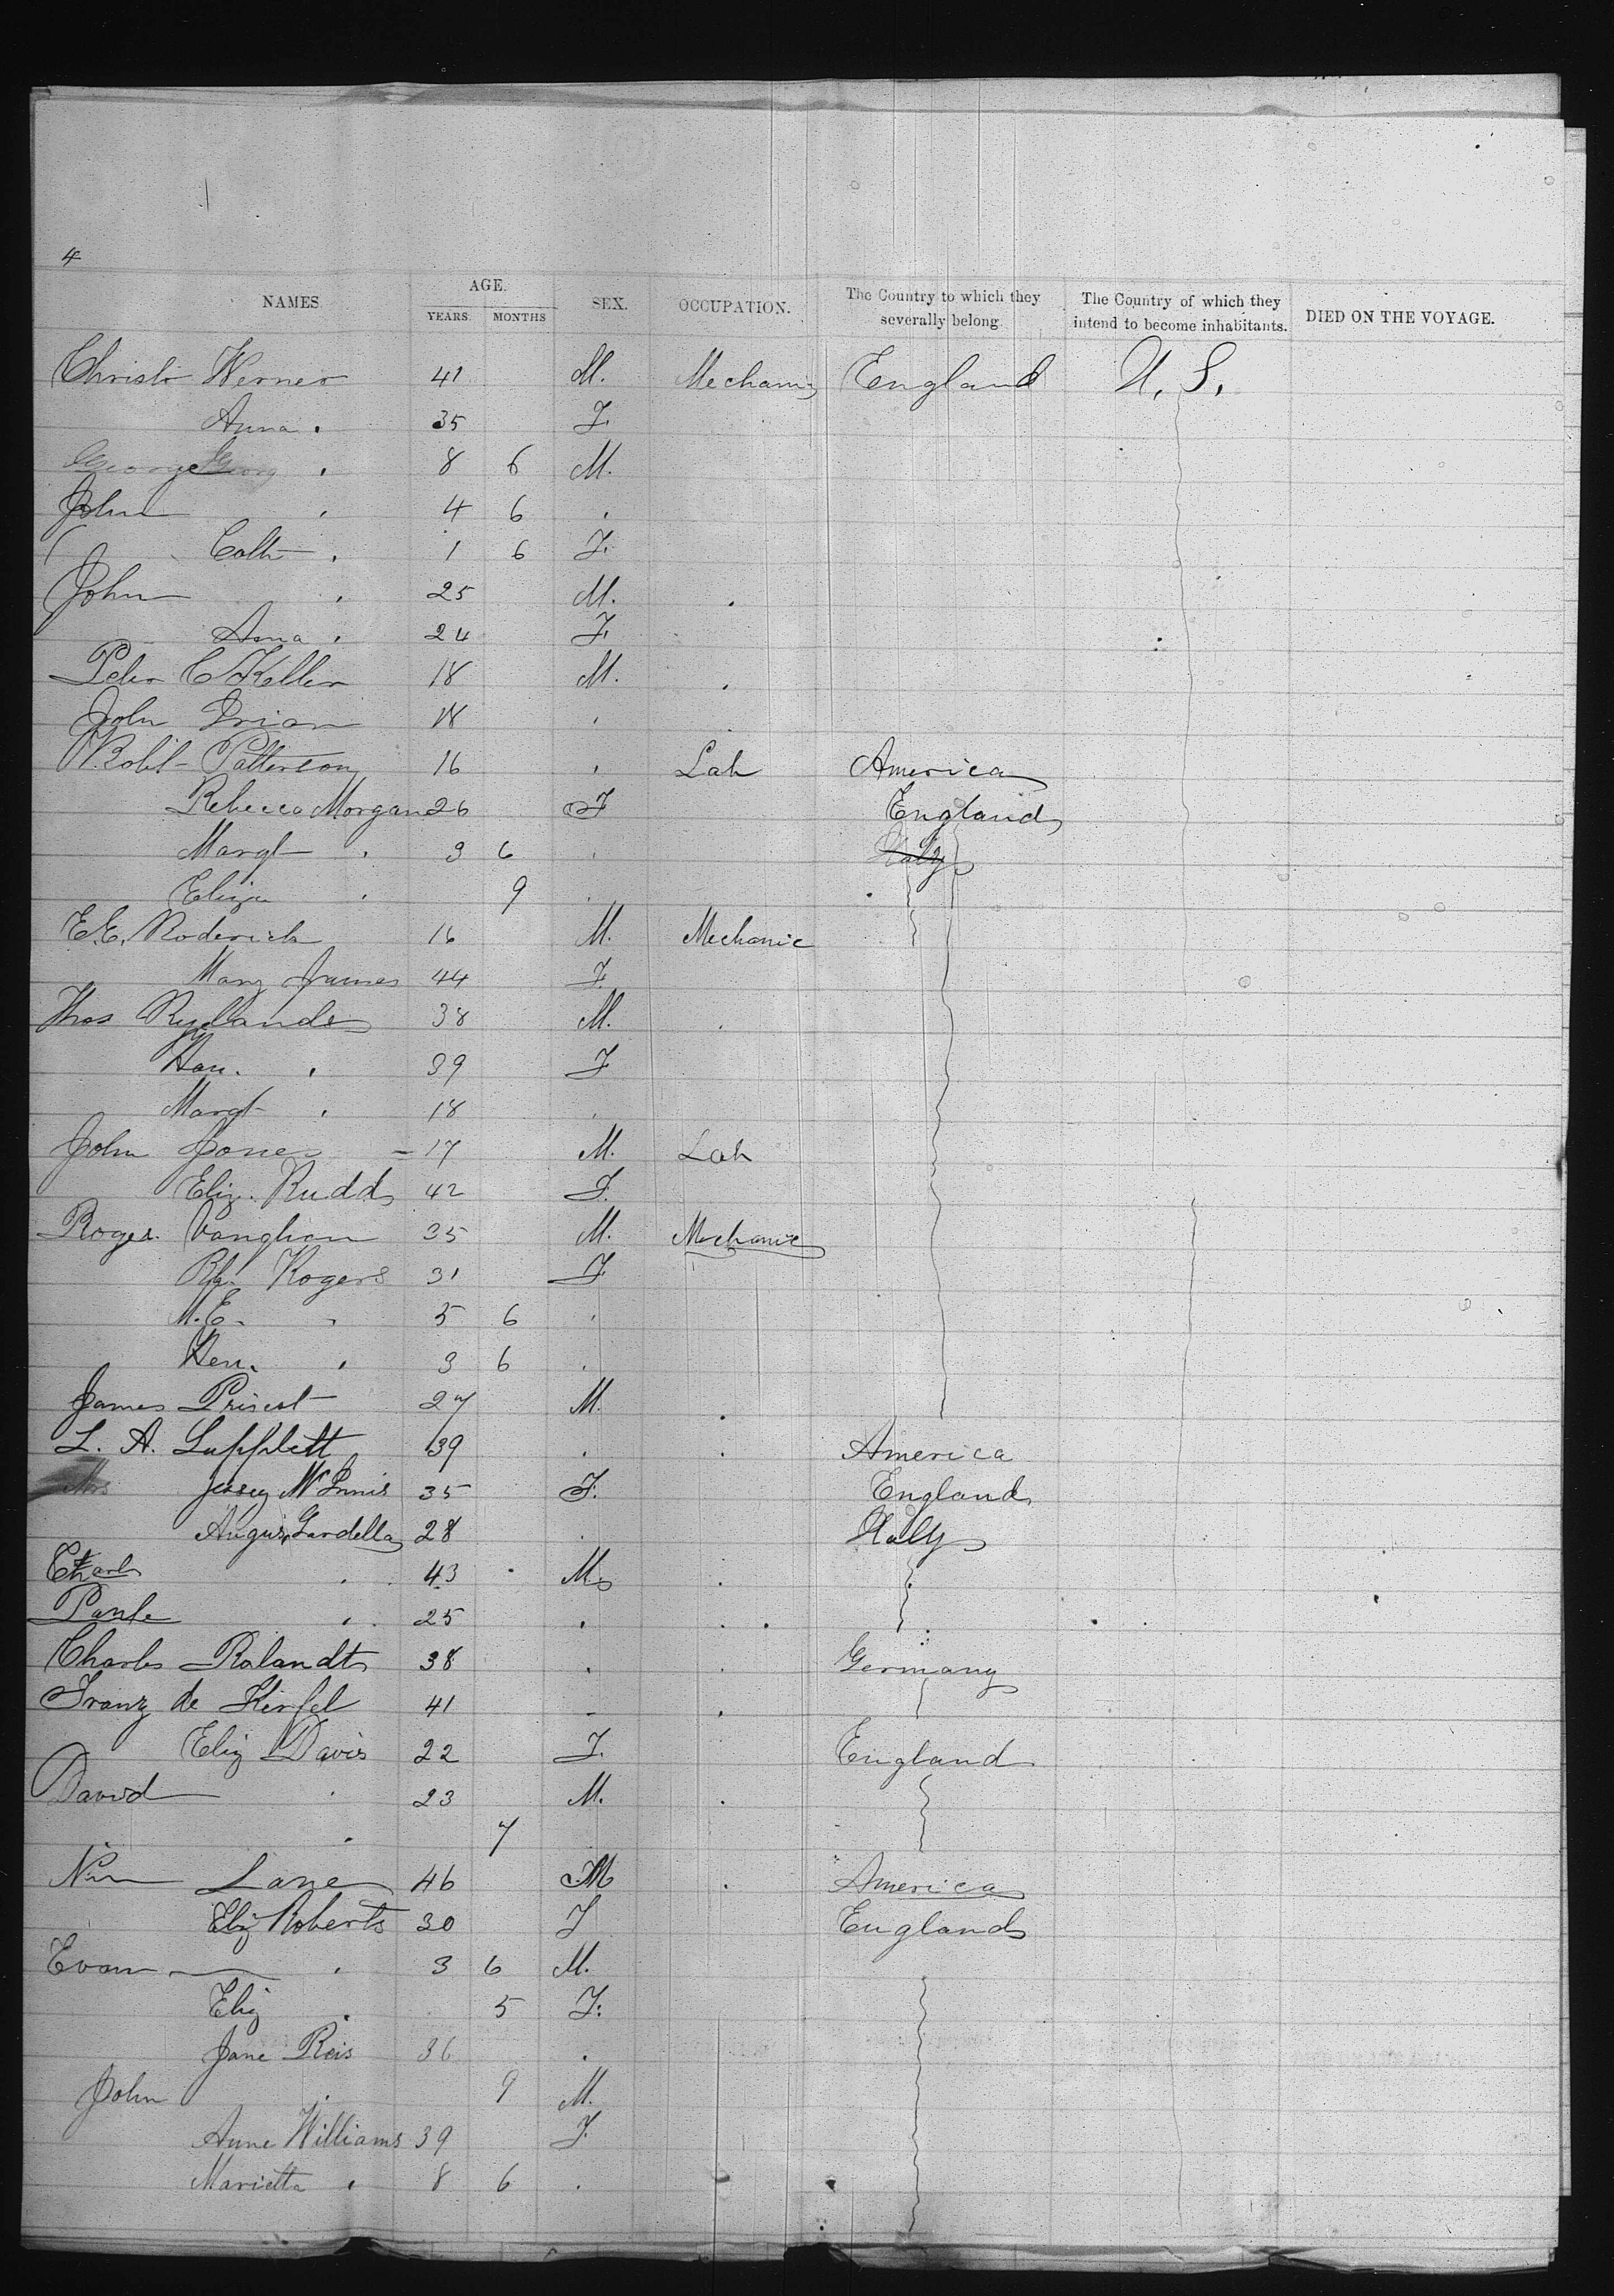 4
NAMES. AGE. SEX. OCCUPATION. The Country to which they severally belong The Country of which they intend to become inhabitants. DIED ON THE VOYAGE.
YEARS. MONTHS
Christr Werner 41 M. Mechanic England U. S.
Anna . 35 F.
George . 8 6 M.
John . 4 6 .
Cath . 1 6 F.
John . 25 M. .
Anna . 24 F.
Peter C Keller 18 M. .
John 18 .
Robt Patterson 16 . Lab America
Rebecca Morgan 26 F England
Margt . 3 6 . Italy
Eliza . 9 .
E.E. Roderick 16 M. Mechanic
Mary James 44 F.
Thos Rylands 38 M. .
Han. . 39 F
Margt . 18 .
John Jones - 17 M. Lab
Eliz. Rudd 42 F.
Roger Vaughan 35 M. Mechanic
Rogers 31 F
M.E. . 5 6 .
Hen. . 3 6 .
James Priest 27 M. .
L. A. Supplett 39 . . America
Mrs Jessy McInnis 35 F. England
Angus Gardella 28 . Italy
Charls . 43 M .
. 25 . .
Charles Rolandt 38 . . Germany
Franz de Kirfel 41 - .
Eliz Davis 22 F. England
David . 23 M. .
. 7
Lane 46 M . America
Eliz Roberts 30 F England
Evan . 3 6 M.
Eliz . 5 F.
Jane Reis 36 .
John . 9 M.
Anne Williams 39 F.
Marietta . 8 6 .